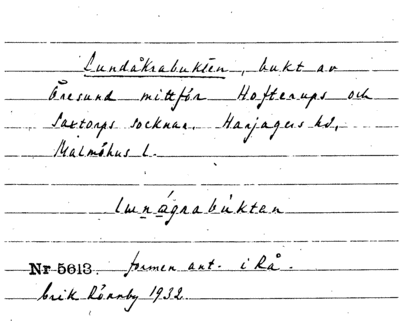 Lundåkrabukten, bukt av
Öresund mittför Hofterups och
Saxtorps socknar. Harjagers hd,
Malmöhus l.
lunágrabúktan
Nr 5613. formen ant. i Rå.
Erik Rönnby 1932.